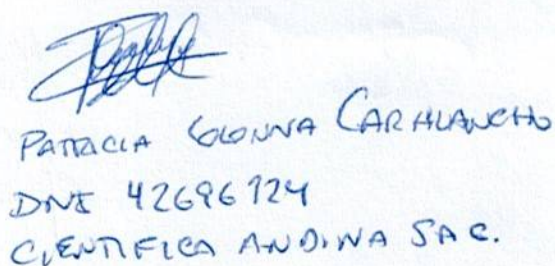 PATRICIA COLONNA CARHUANCHO
DNI 42696724
CIENTIFICA ANDINA SAC.